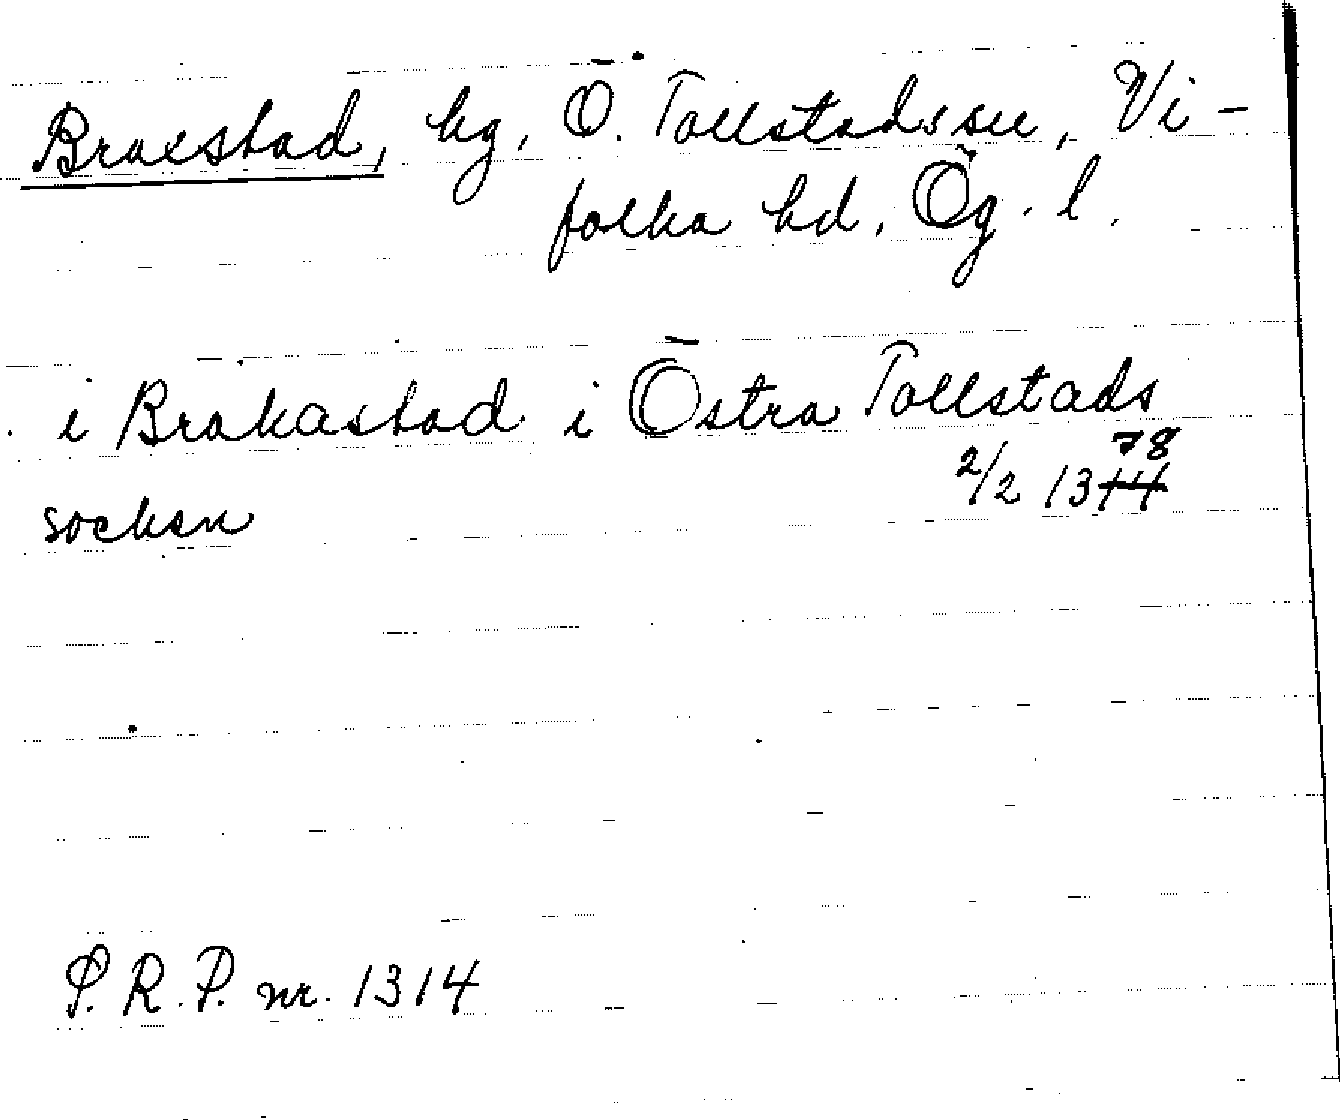 Braxstad, by, Ö. Tollstads sn, Vi-
folka hd, Ög. l.
i Brakastad i Östra Tollstads
socken 2/2 1378
S.R.P. nr. 1314